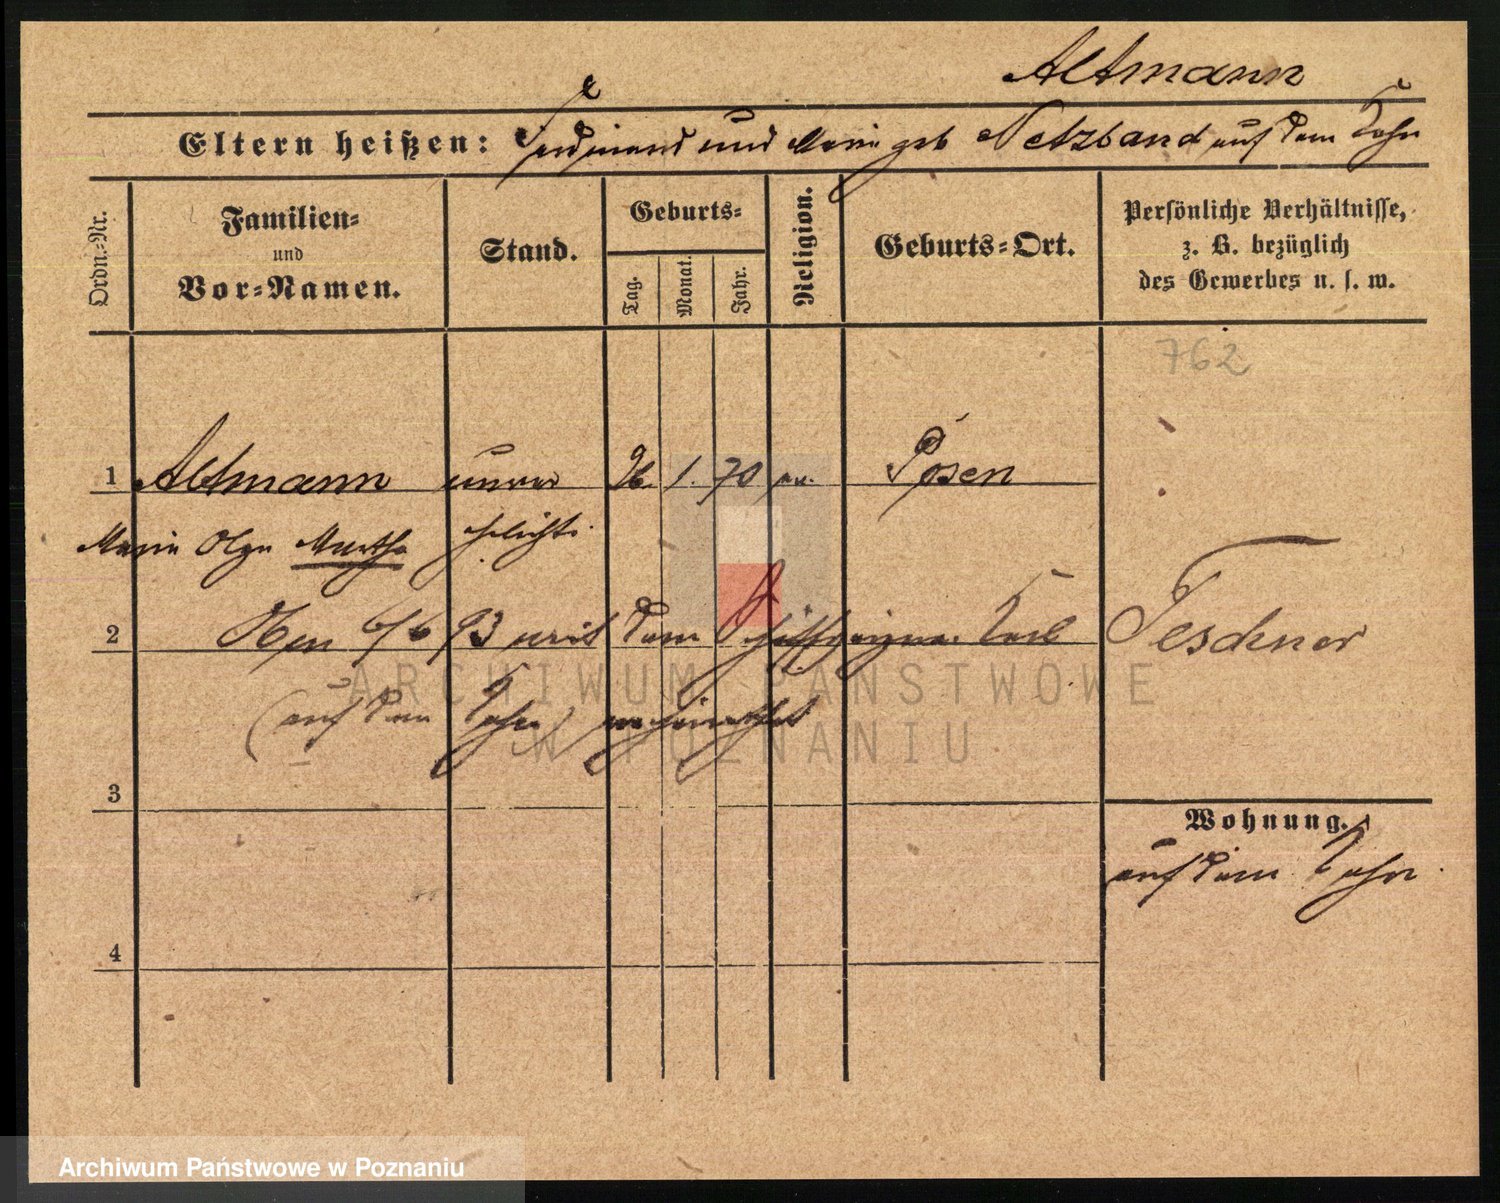 Altmann
Eltern heißen: Ferdinand und Marie geb Netzband auf dem Kahn
Ordn.-Nr.
Familien-
und
Vor-Namen.
Stand.
Geburts-
Tag.
Monat.
Jahr.
Religion.
Geburts-Ort.
Persönliche Verhältnisse,
z. B. bezüglich
des Gewerbes u. s. w.
762
1 Altmann unver 26. 1. 70 ev. Posen
Marie Olga Martha ehelicht.
2 Am 6/6 93 mit dem Schiffseigner Karl Teschner
(auf dem Kahn) verheirathet
3
Wohnung.
auf dem Kahn.
4
ARCHIWUM PAŃSTWOWE
W POZNANIU
Archiwum Państwowe w Poznaniu